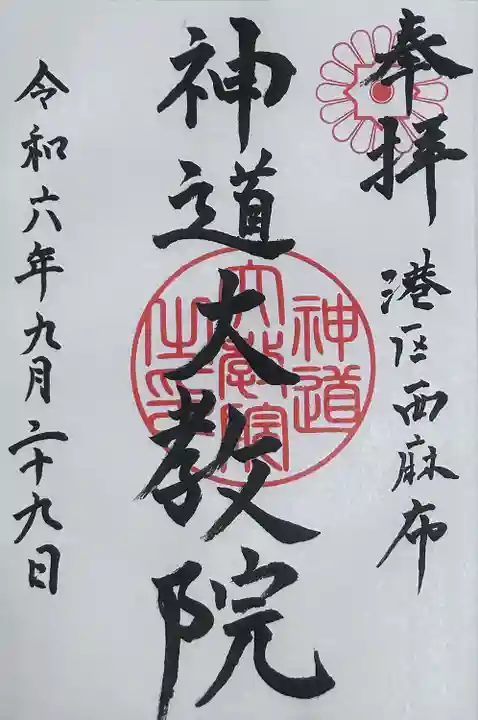 奉拝
港区西麻布
神道大教院
神道
大教院
之印
令和六年九月二十九日